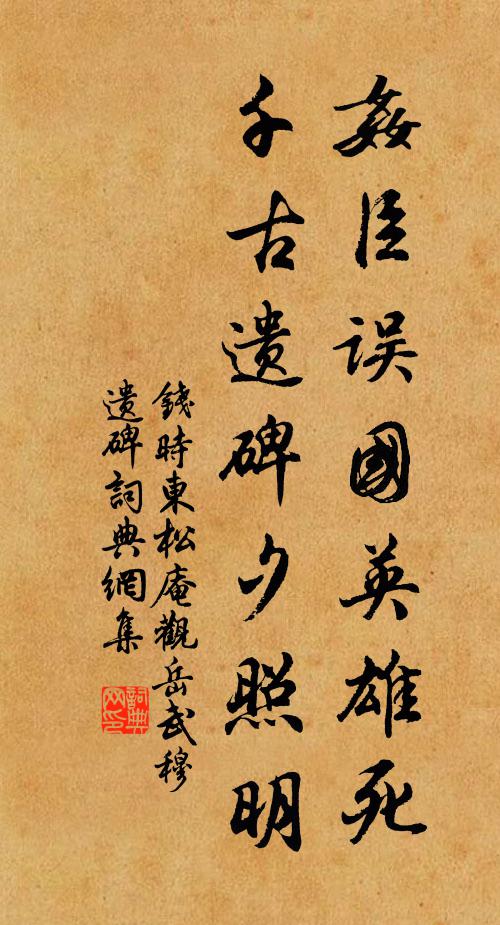 姦臣误國英雄死
千古遗碑夕照明
錢時東松庵觀岳武穆
遗碑詞典網集
詞典网印